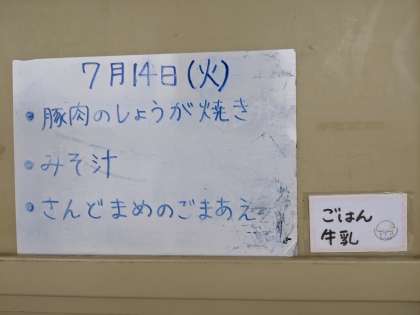 7月14日(火)
・豚肉のしょうが焼き
・みそ汁
・さんどまめのごまあえ
ごはん
牛乳